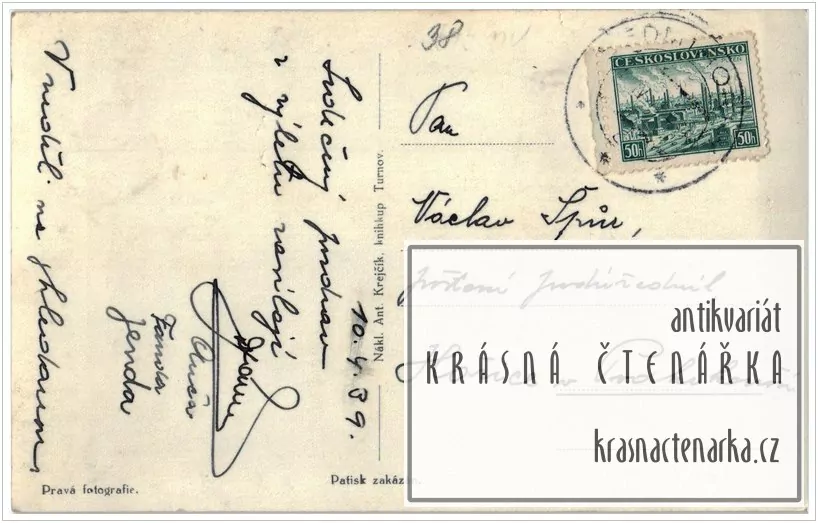 38
ČESKOSLOVENSKO
50h
50h
Pan
Václav Špůr,
poštovní podúředník
antikvariát
KRÁSNÁ ČTENÁŘKA
krasnactenarka.cz
Nákl. Ant. Krejčík, knihkup Turnov.
Patisk zakázán
10.4.39.
Srdečný pozdrav
z výletu zasílají
Anča
Fanda
Jenda
V neděli na shledanou
Pravá fotografie.